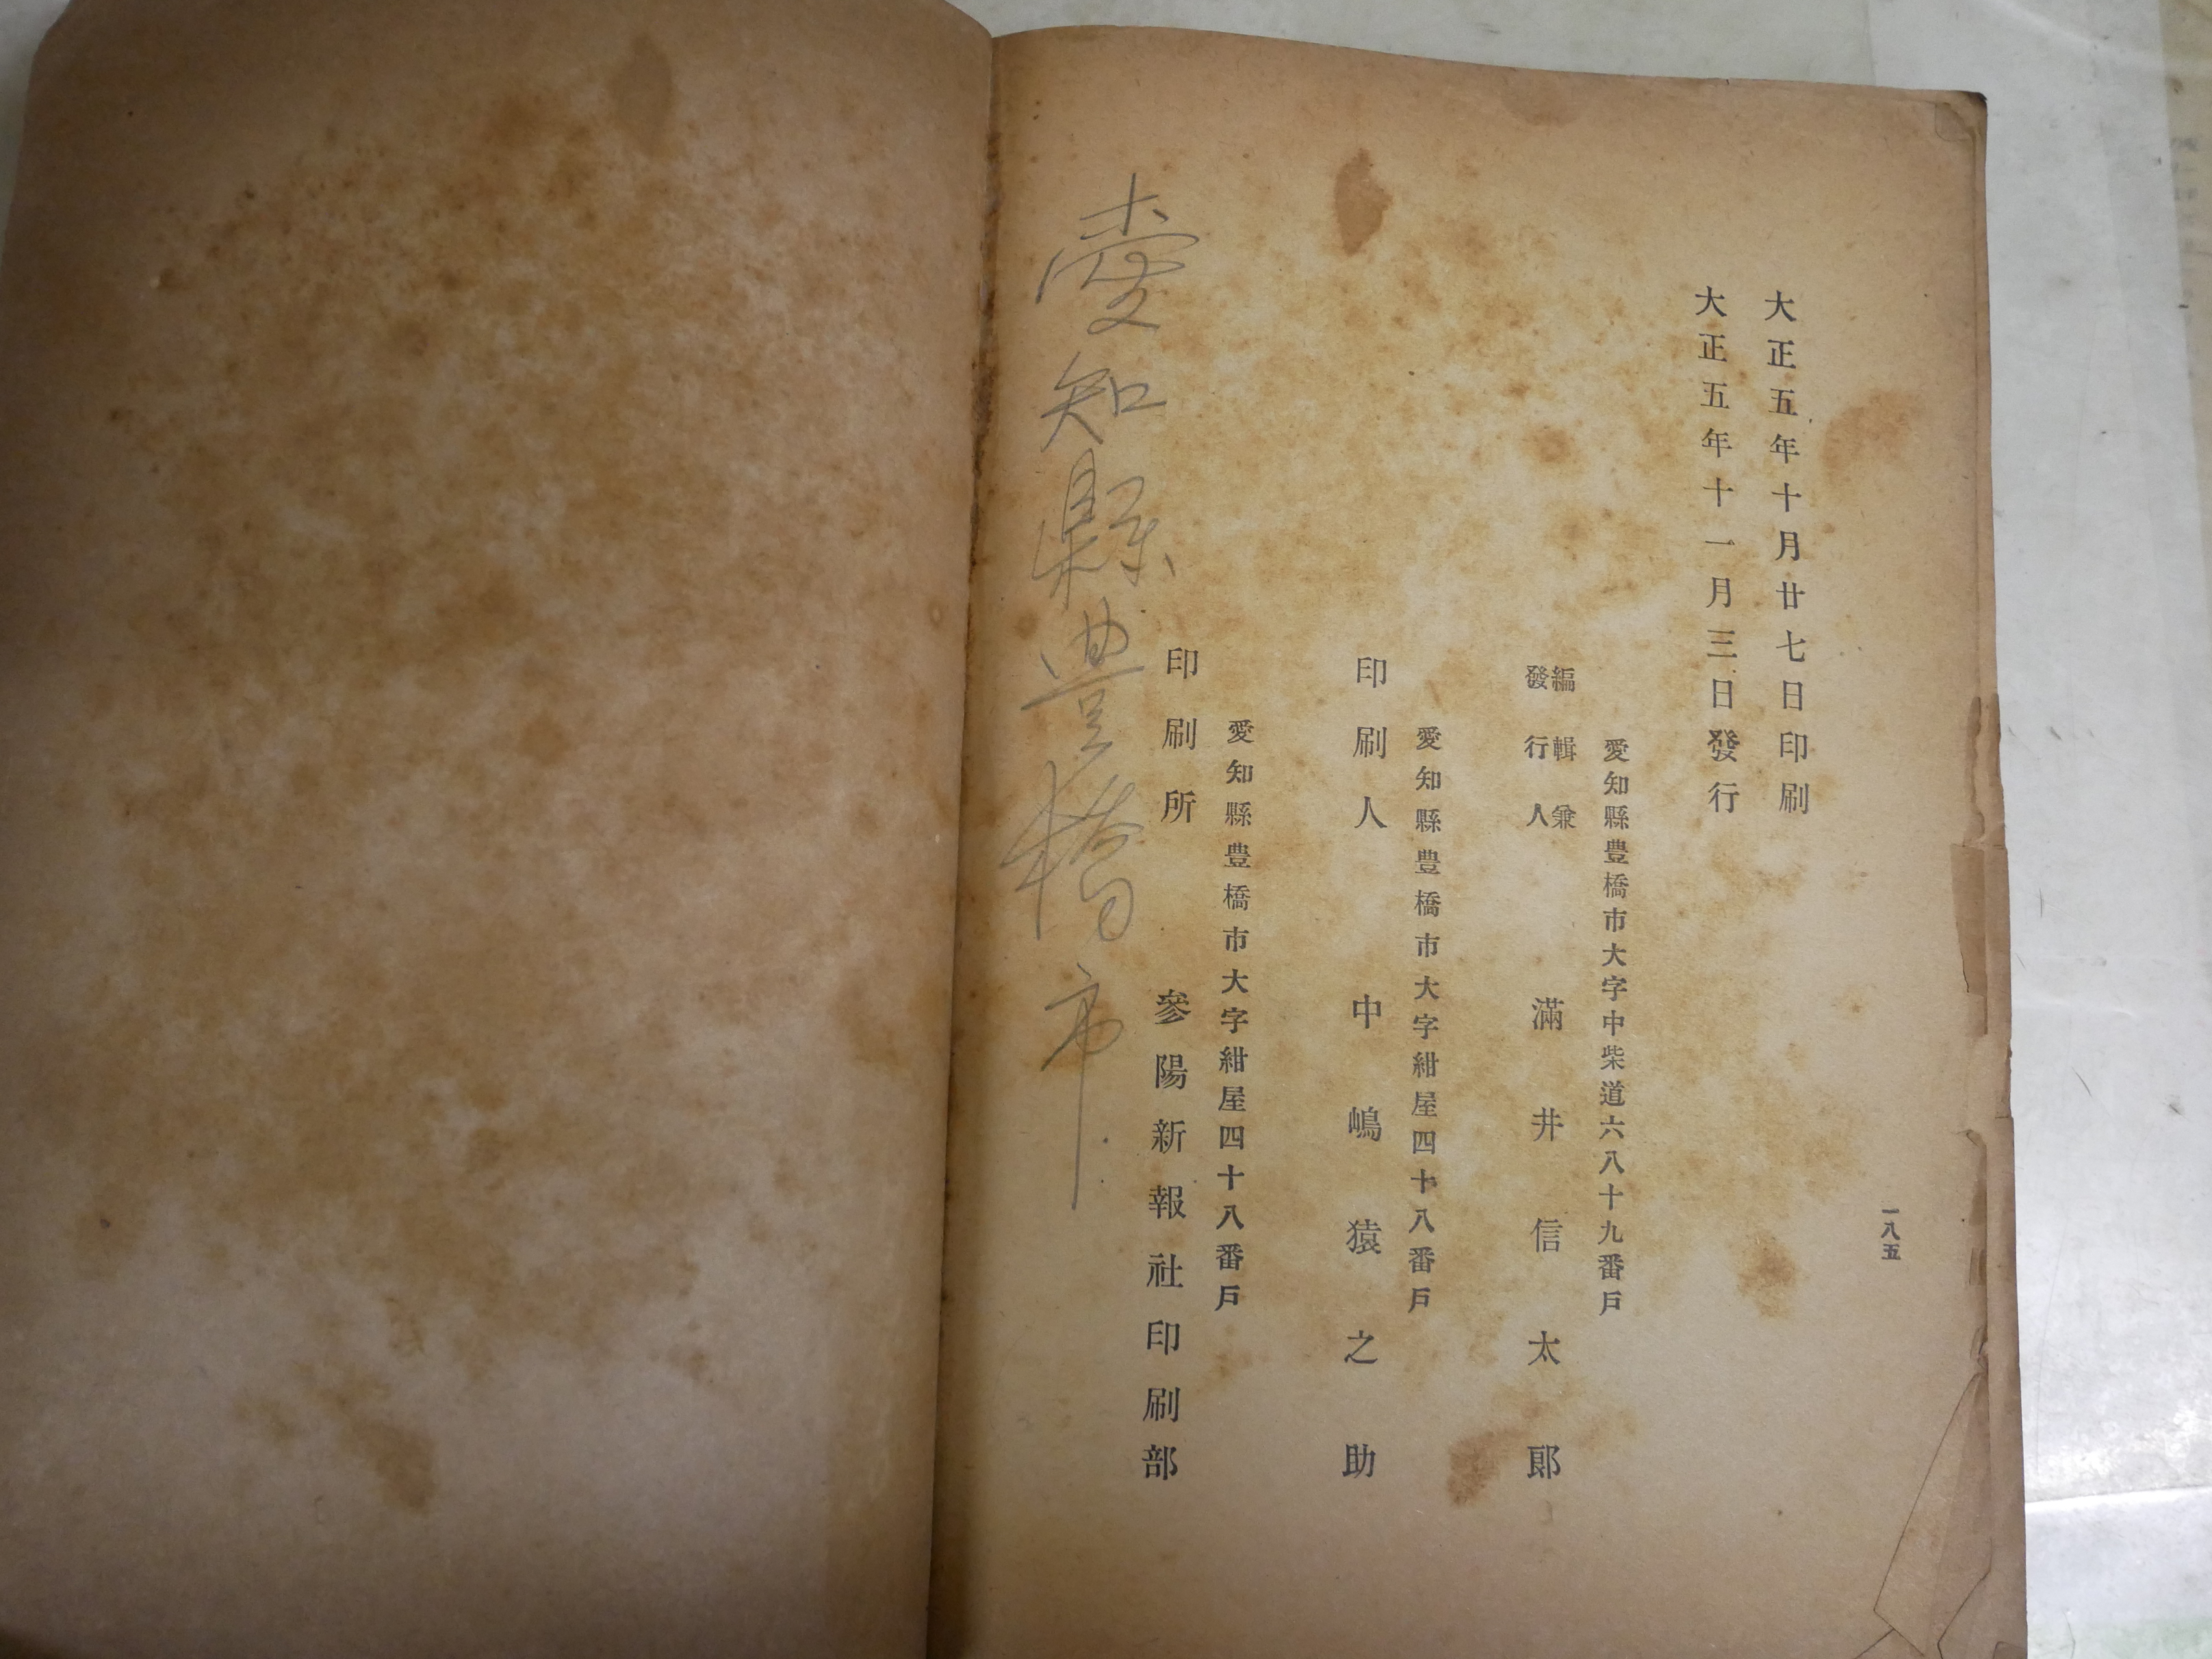 一八五
大正五年十月廿七日印刷
大正五年十一月三日發行
愛知縣豊橋市大字中柴道六八十九番戶
編輯兼
發行人
滿井信太郞
愛知縣豊橋市大字紺屋四十八番戶
印刷人 中嶋猿之助
愛知縣豊橋市大字紺屋四十八番戶
印刷所 參陽新報社印刷部
愛知縣豊橋市